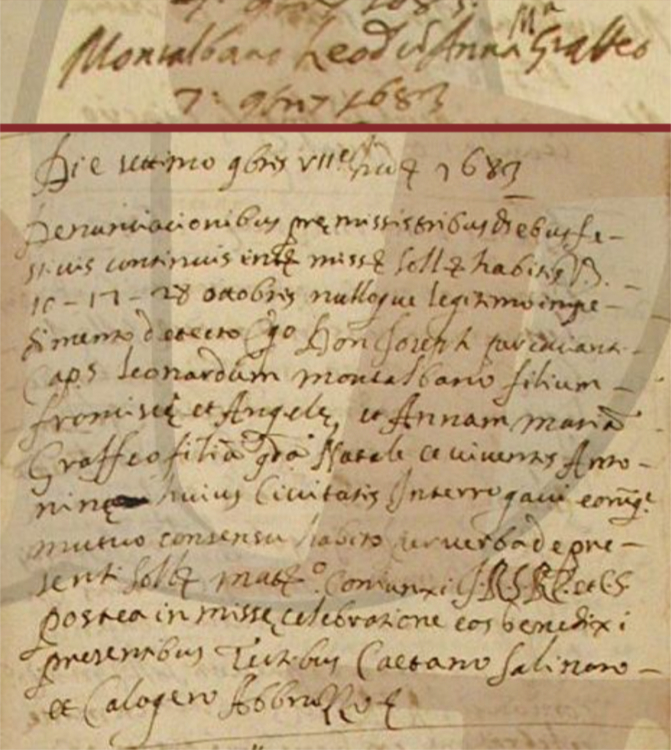 Montalbano Leod cũ Anna Mª Graffeo
7: 9bris 1683
Die settimo 9bris VIIe Ind 1683
Denunciacionibus premissis tribus diebus fe-
stivis continuis inter miss solt habitis
10 - 17 - 28 ottobris nulloque legitimo impe-
dimento detecto Ego Don Joseph
Cap.s Leonardum montalbano filium
et Angele, et Annam mariā
Graffeo filiā qda Natale et viventis Anto-
nine huius Civitatis Interrogavi eorūq.
mutuo consensu habito per verba de pre-
senti solt matr.º Coniunxi et
postea in misse celebratione eos benedixi
presentibus Testibus Caetano Salinaro
et Calogero Abbruzzo